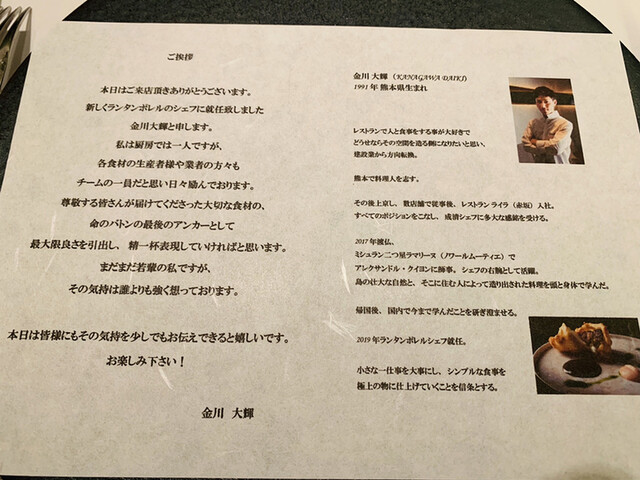 ご挨拶
本日はご来店頂きありがとうございます。
新しくランタンポレルのシェフに就任致しました
金川大輝と申します。
私は厨房では一人ですが、
各食材の生産者様や業者の方々も
チームの一員だと思い日々励んでおります。
尊敬する皆さんが届けてくださった大切な食材の、
命のバトンの最後のアンカーとして
最大限良さを引出し、精一杯表現していければと思います。
まだまだ若輩の私ですが、
その気持は誰よりも強く想っております。
本日は皆様にもその気持を少しでもお伝えできると嬉しいです。
お楽しみ下さい！
金川 大輝
金川 大輝（KANAGAWA DAIKI)
1991 年 熊本県生まれ
レストランで人と食事をする事が大好きで
どうせならその空間を造る側になりたいと思い、
建設業から方向転換。
熊本で料理人を志す。
その後上京し、数店舗で従事後、レストラン ライラ（赤坂）入社。
すべてのポジションをこなし、成清シェフに多大な感銘を受ける。
2017 年渡仏。
ミシュラン二つ星ラマリーヌ（ノワールムーティエ）で
アレクサンドル・クイヨンに師事。シェフの右腕として活躍。
島の壮大な自然と、そこに住む人によって造り出された料理を頭と身体で学んだ。
帰国後、国内で今まで学んだことを研ぎ澄ませる。
2019 年ランタンポレルシェフ就任。
小さな一仕事を大事にし、シンプルな食事を
極上の物に仕上げていくことを信条とする。